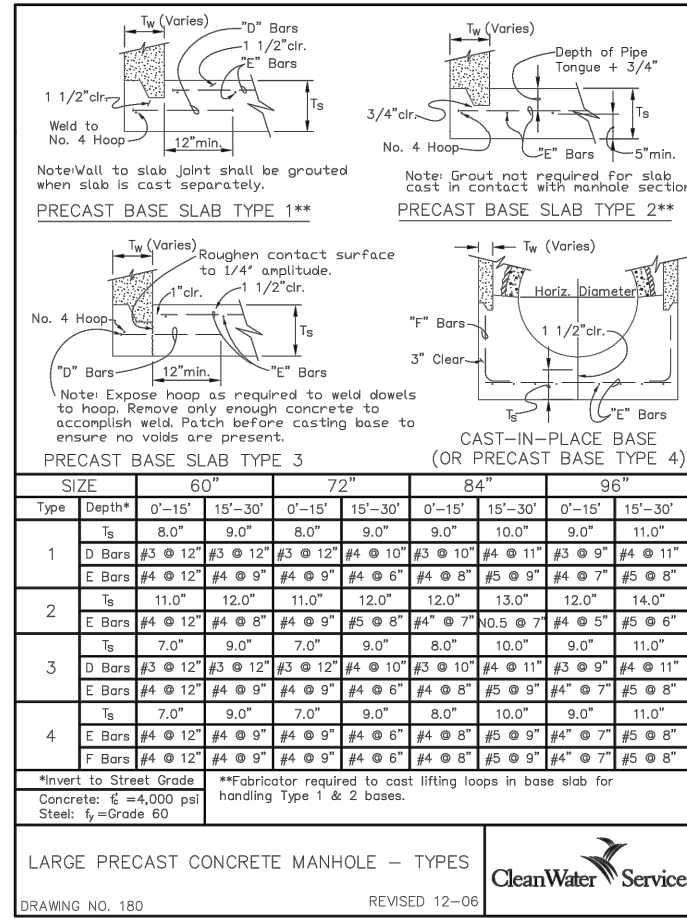 Tw (Varies)
"D" Bars
1 1/2"clr.
"E" Bars
1 1/2"clr.
Ts
Weld to
No. 4 Hoop
12"min.
Note:Wall to slab joint shall be grouted
when slab is cast separately.
PRECAST BASE SLAB TYPE 1**
Tw (Varies)
Depth of Pipe
Tongue + 3/4"
3/4"clr.
Ts
No. 4 Hoop
"E" Bars
5"min.
Note: Grout not required for slab
cast in contact with manhole section
PRECAST BASE SLAB TYPE 2**
Tw (Varies)
Roughen contact surface
to 1/4" amplitude.
1"clr.
1 1/2"clr.
No. 4 Hoop
Ts
"D" Bars
12"min.
"E" Bars
Note: Expose hoop as required to weld dowels
to hoop. Remove only enough concrete to
accomplish weld. Patch before casting base to
ensure no voids are present.
PRECAST BASE SLAB TYPE 3
Tw (Varies)
Horiz. Diameter
"F" Bars
1 1/2"clr.
3" Clear
Ts
"E" Bars
CAST-IN-PLACE BASE
(OR PRECAST BASE TYPE 4)
SIZE 60" 72" 84" 96"
Type Depth* 0'-15' 15'-30' 0'-15' 15'-30' 0'-15' 15'-30' 0'-15' 15'-30'
1
Ts 8.0" 9.0" 8.0" 9.0" 9.0" 10.0" 9.0" 11.0"
D Bars #3 @ 12" #3 @ 12" #3 @ 12" #4 @ 10" #3 @ 10" #4 @ 11" #3 @ 9" #4 @ 11"
E Bars #4 @ 12" #4 @ 9" #4 @ 9" #4 @ 6" #4 @ 8" #5 @ 9" #4 @ 7" #5 @ 8"
2
Ts 11.0" 12.0" 11.0" 12.0" 12.0" 13.0" 12.0" 14.0"
E Bars #4 @ 12" #4 @ 8" #4 @ 9" #5 @ 8" #4" @ 7" N0.5 @ 7" #4 @ 5" #5 @ 6"
3
Ts 7.0" 9.0" 7.0" 9.0" 8.0" 10.0" 9.0" 11.0"
D Bars #3 @ 12" #3 @ 12" #3 @ 12" #4 @ 10" #3 @ 10" #4 @ 11" #3 @ 9" #4 @ 11"
E Bars #4 @ 12" #4 @ 9" #4 @ 9" #4 @ 6" #4 @ 8" #5 @ 9" #4" @ 7" #5 @ 8"
4
Ts 7.0" 9.0" 7.0" 9.0" 8.0" 10.0" 9.0" 11.0"
E Bars #4 @ 12" #4 @ 9" #4 @ 9" #4 @ 6" #4 @ 8" #5 @ 9" #4" @ 7" #5 @ 8"
F Bars #4 @ 12" #4 @ 9" #4 @ 9" #4 @ 6" #4 @ 8" #5 @ 9" #4" @ 7" #5 @ 8"
*Invert to Street Grade
Concrete: f'c =4,000 psi
Steel: fy =Grade 60
**Fabricator required to cast lifting loops in base slab for
handling Type 1 & 2 bases.
LARGE PRECAST CONCRETE MANHOLE – TYPES
DRAWING NO. 180
REVISED 12-06
CleanWater Service